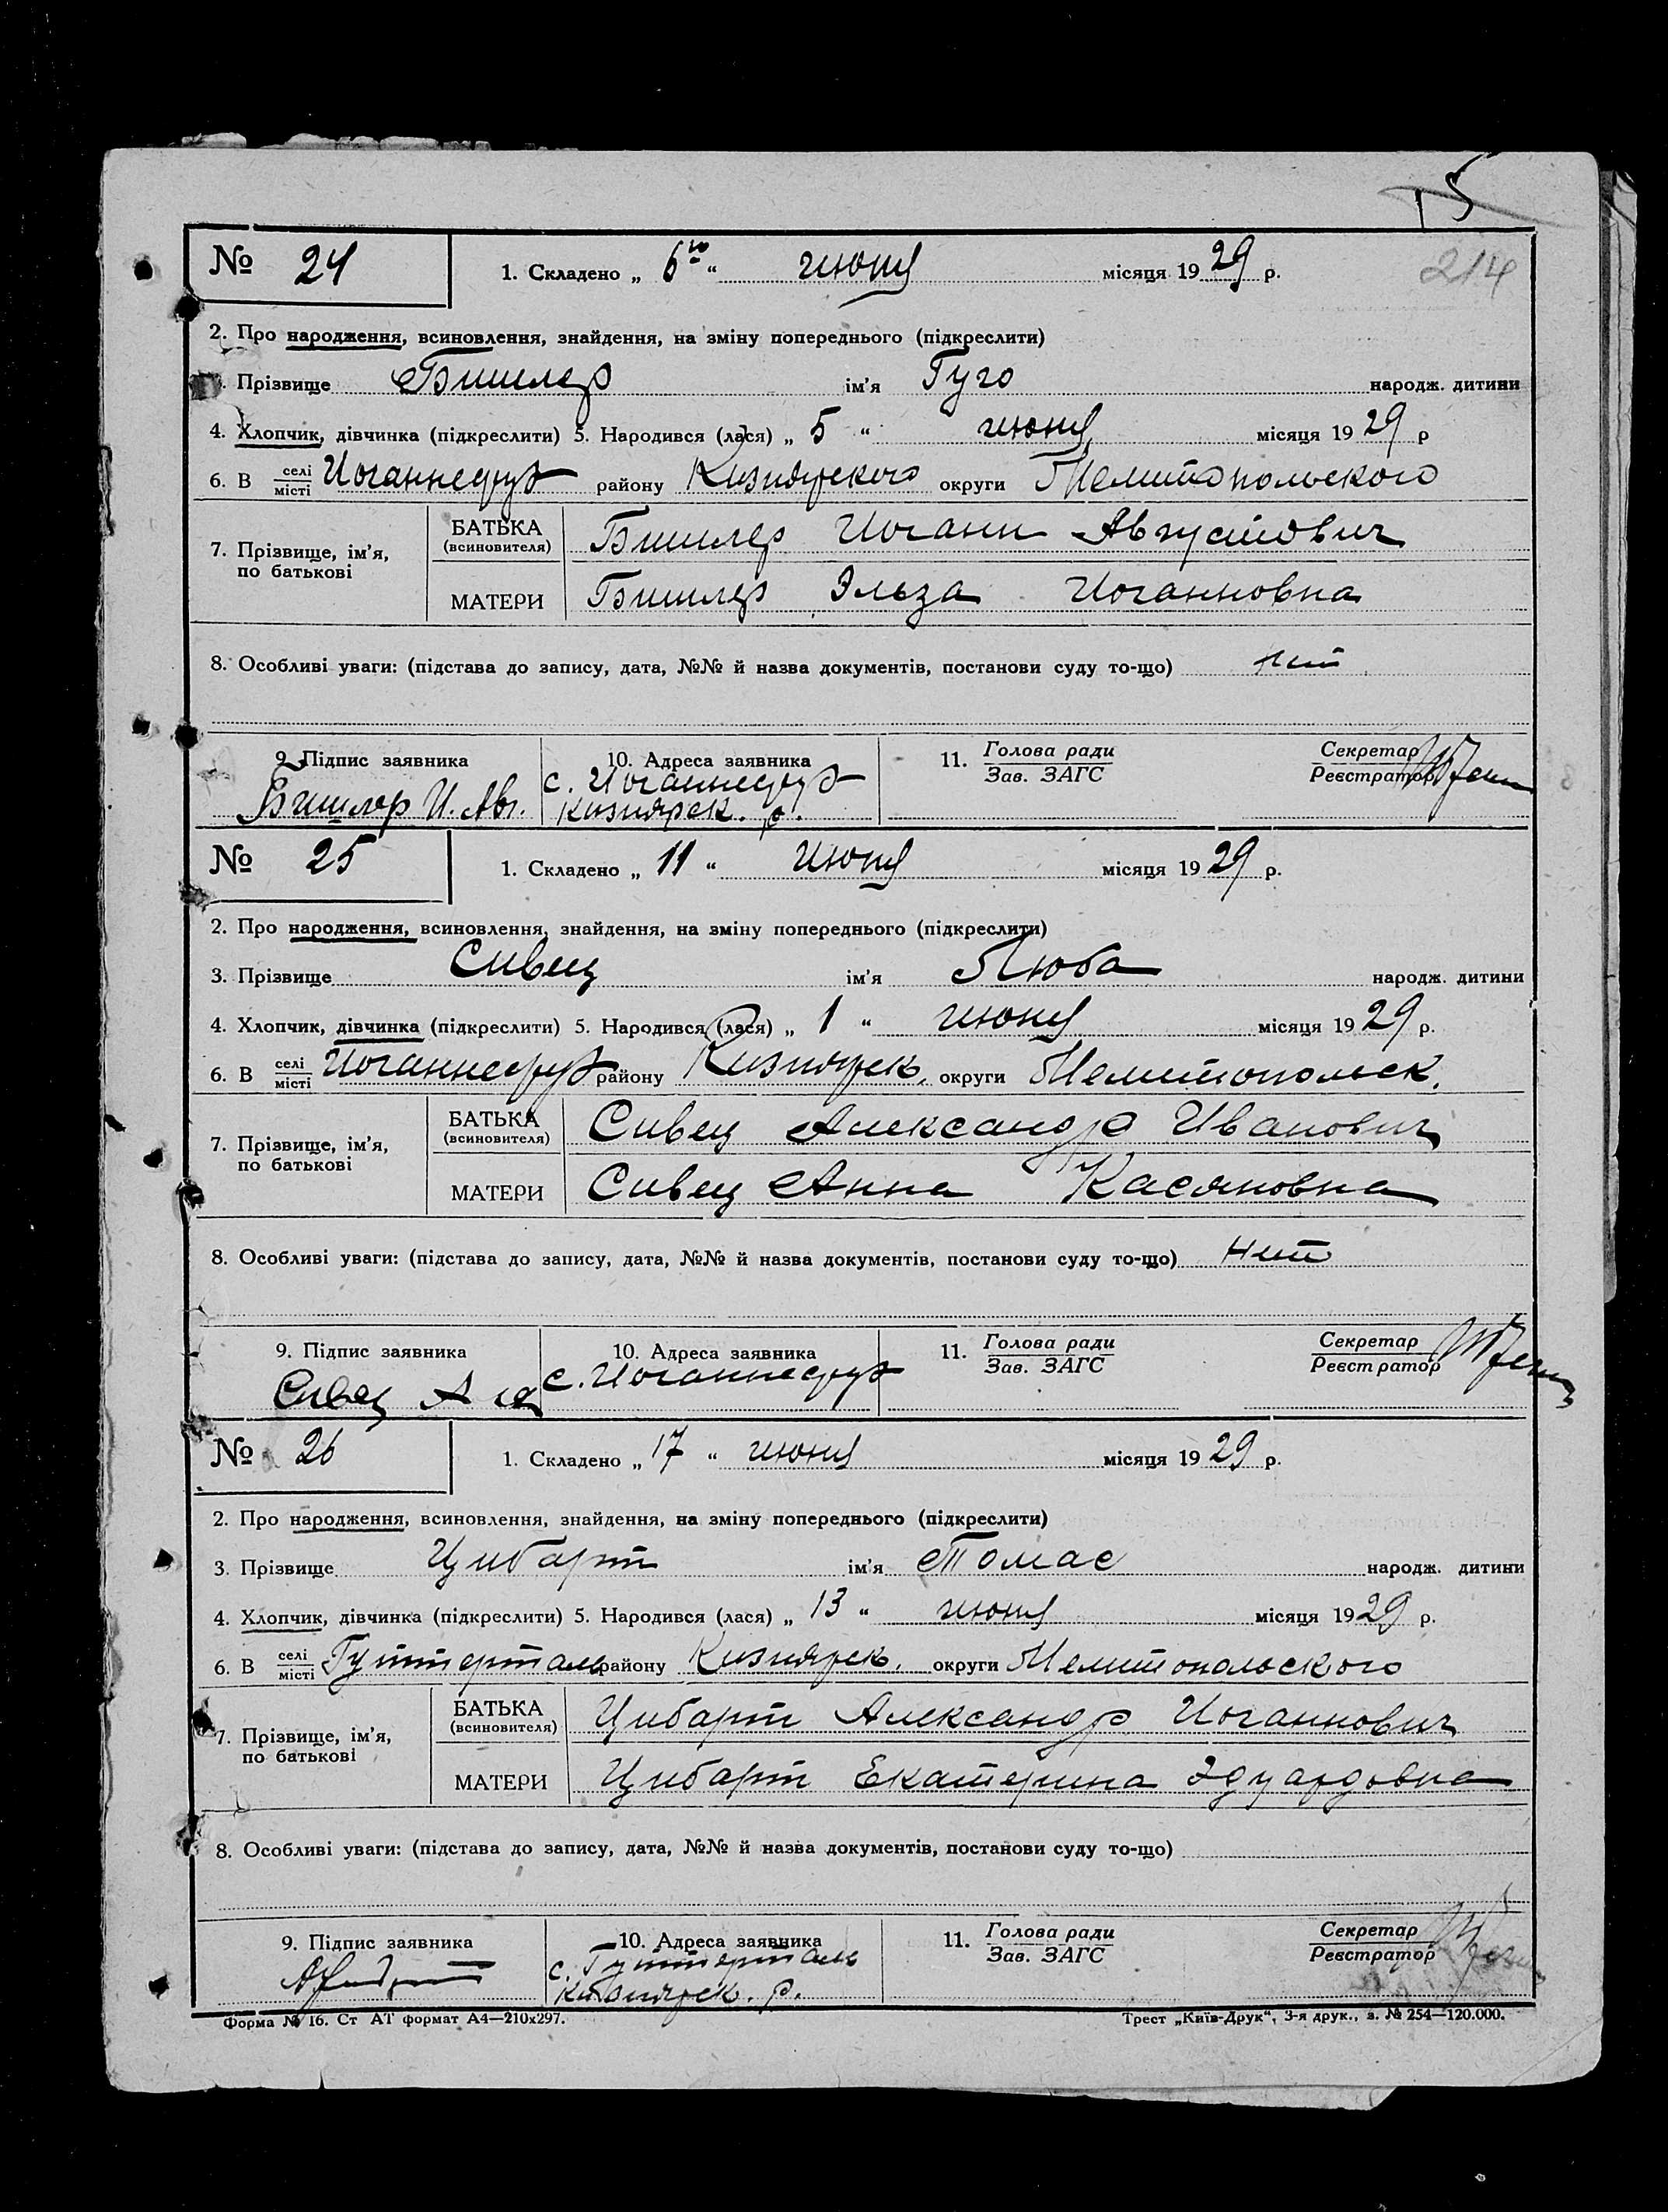 15
214
№ 24 1. Складено „ 6го “ июня місяця 1929 р.
2. Про народження, всиновлення, знайдення, на зміну попереднього (підкреслити)
Прізвище Бишлер ім'я Гуго народж. дитини
4. Хлопчик, дівчинка (підкреслити) 5. Народився (лася) „ 5 “ июня місяця 1929 р
6. В селі місті Иоганнесруэ району Кизиярского округи Мелитопольского
7. Прізвище, ім'я, по батькові
БАТЬКА (всиновителя) Бишлер Иоганн Августович
МАТЕРИ Бишлер Эльза Иоганновна
8. Особливі уваги: (підстава до запису, дата, №№ й назва документів, постанови суду то-що) нет
9. Підпис заявника 10. Адреса заявника 11. Голова ради Зав. ЗАГС Секретар Реєстратор
Бишлер И. Авг. с. Иоганнесруэ
Кизиярск. р.
№ 25 1. Складено „ 11 “ июня місяця 1929 р.
2. Про народження, всиновлення, знайдення, на зміну попереднього (підкреслити)
3. Прізвище Сивец ім'я Люба народж. дитини
4. Хлопчик, дівчинка (підкреслити) 5. Народився (лася) „ 1 “ июня місяця 1929 р.
6. В селі місті Иоганнесруэ району Кизиярск. округи Мелитопольск.
7. Прізвище, ім'я, по батькові
БАТЬКА (всиновителя) Сивец Александр Иванович
МАТЕРИ Сивец Анна Касяновна
8. Особливі уваги: (підстава до запису, дата, №№ й назва документів, постанови суду то-що) нет
9. Підпис заявника 10. Адреса заявника 11. Голова ради Зав. ЗАГС Секретар Реєстратор
Сивец А с. Иоганнесруэ
№ 26 1. Складено „ 17 “ июня місяця 1929 р.
2. Про народження, всиновлення, знайдення, на зміну попереднього (підкреслити)
3. Прізвище Цибарт ім'я Томас народж. дитини
4. Хлопчик, дівчинка (підкреслити) 5. Народився (лася) „ 13 “ июня місяця 1929 р.
6. В селі місті Гуттерталь району Кизиярск. округи Мелитопольского
7. Прізвище, ім'я, по батькові
БАТЬКА (всиновителя) Цибарт Александр Иоганнович
МАТЕРИ Цибарт Екатерина Эдуардовна
8. Особливі уваги: (підстава до запису, дата, №№ й назва документів, постанови суду то-що)
9. Підпис заявника 10. Адреса заявника 11. Голова ради Зав. ЗАГС Секретар Реєстратор
с. Гуттерталь
Кизиярск. р.
Форма № 16. Ст АТ формат А4—210х297. Трест „Київ-Друк“, 3-я друк., з. № 254—120.000.